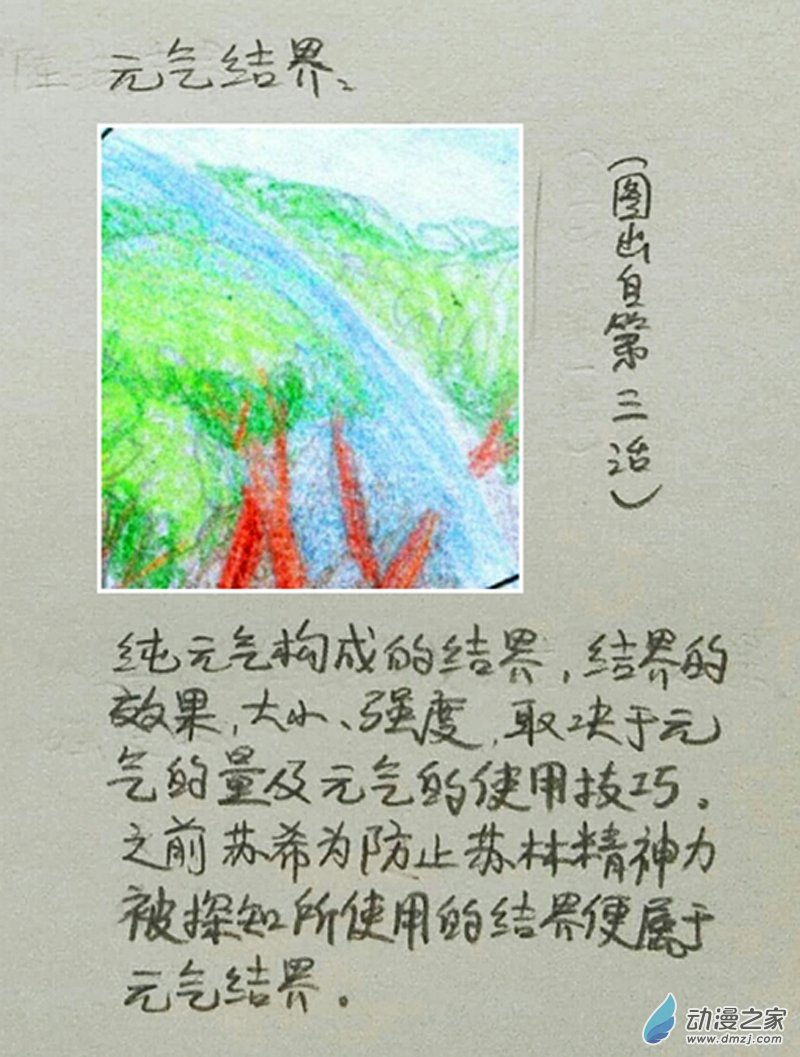 元气结界。
（图出自第三话）
纯元气构成的结界，结界的
效果，大小、强度，取决于元
气的量及元气的使用技巧。
之前苏希为防止苏林精神力
被探知所使用的结界便属于
元气结界。
动漫之家
www.dmzj.com